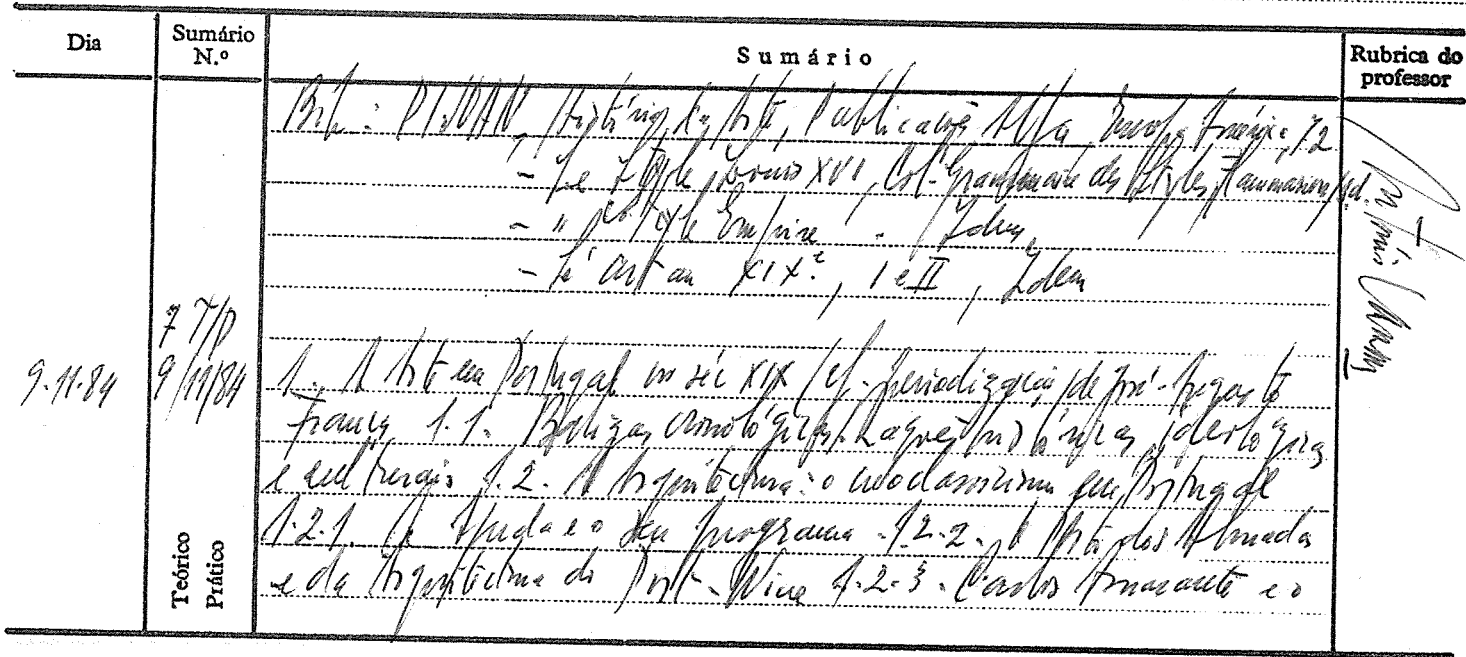 Dia
Sumário N.º
Sumário
Rubrica do professor
Bib: PIJUAN, História da Arte, Publicações Alfa, 72
- Le Style Louis XVI, Col. Grammaire des Styles, Flammarion, s/d.
- " Style Empire - Idem,
- L'art au XIXe, I e II, Idem
9-11-84
7 T/P
9/11/84
Teórico
Prático
1. A Arte em Portugal no séc XIX (cf. periodização de José-Augusto
França 1.1. Balizas cronológicas. históricas, ideológicas
e culturais 1.2. A Arquitectura: o neoclassicismo em Portugal
1.2.1. A Ajuda e o seu programa - 1.2.2. O Porto dos Almadas
e da Arquitectura do Port-Wine 1.2.3. Carlos Amarante e o